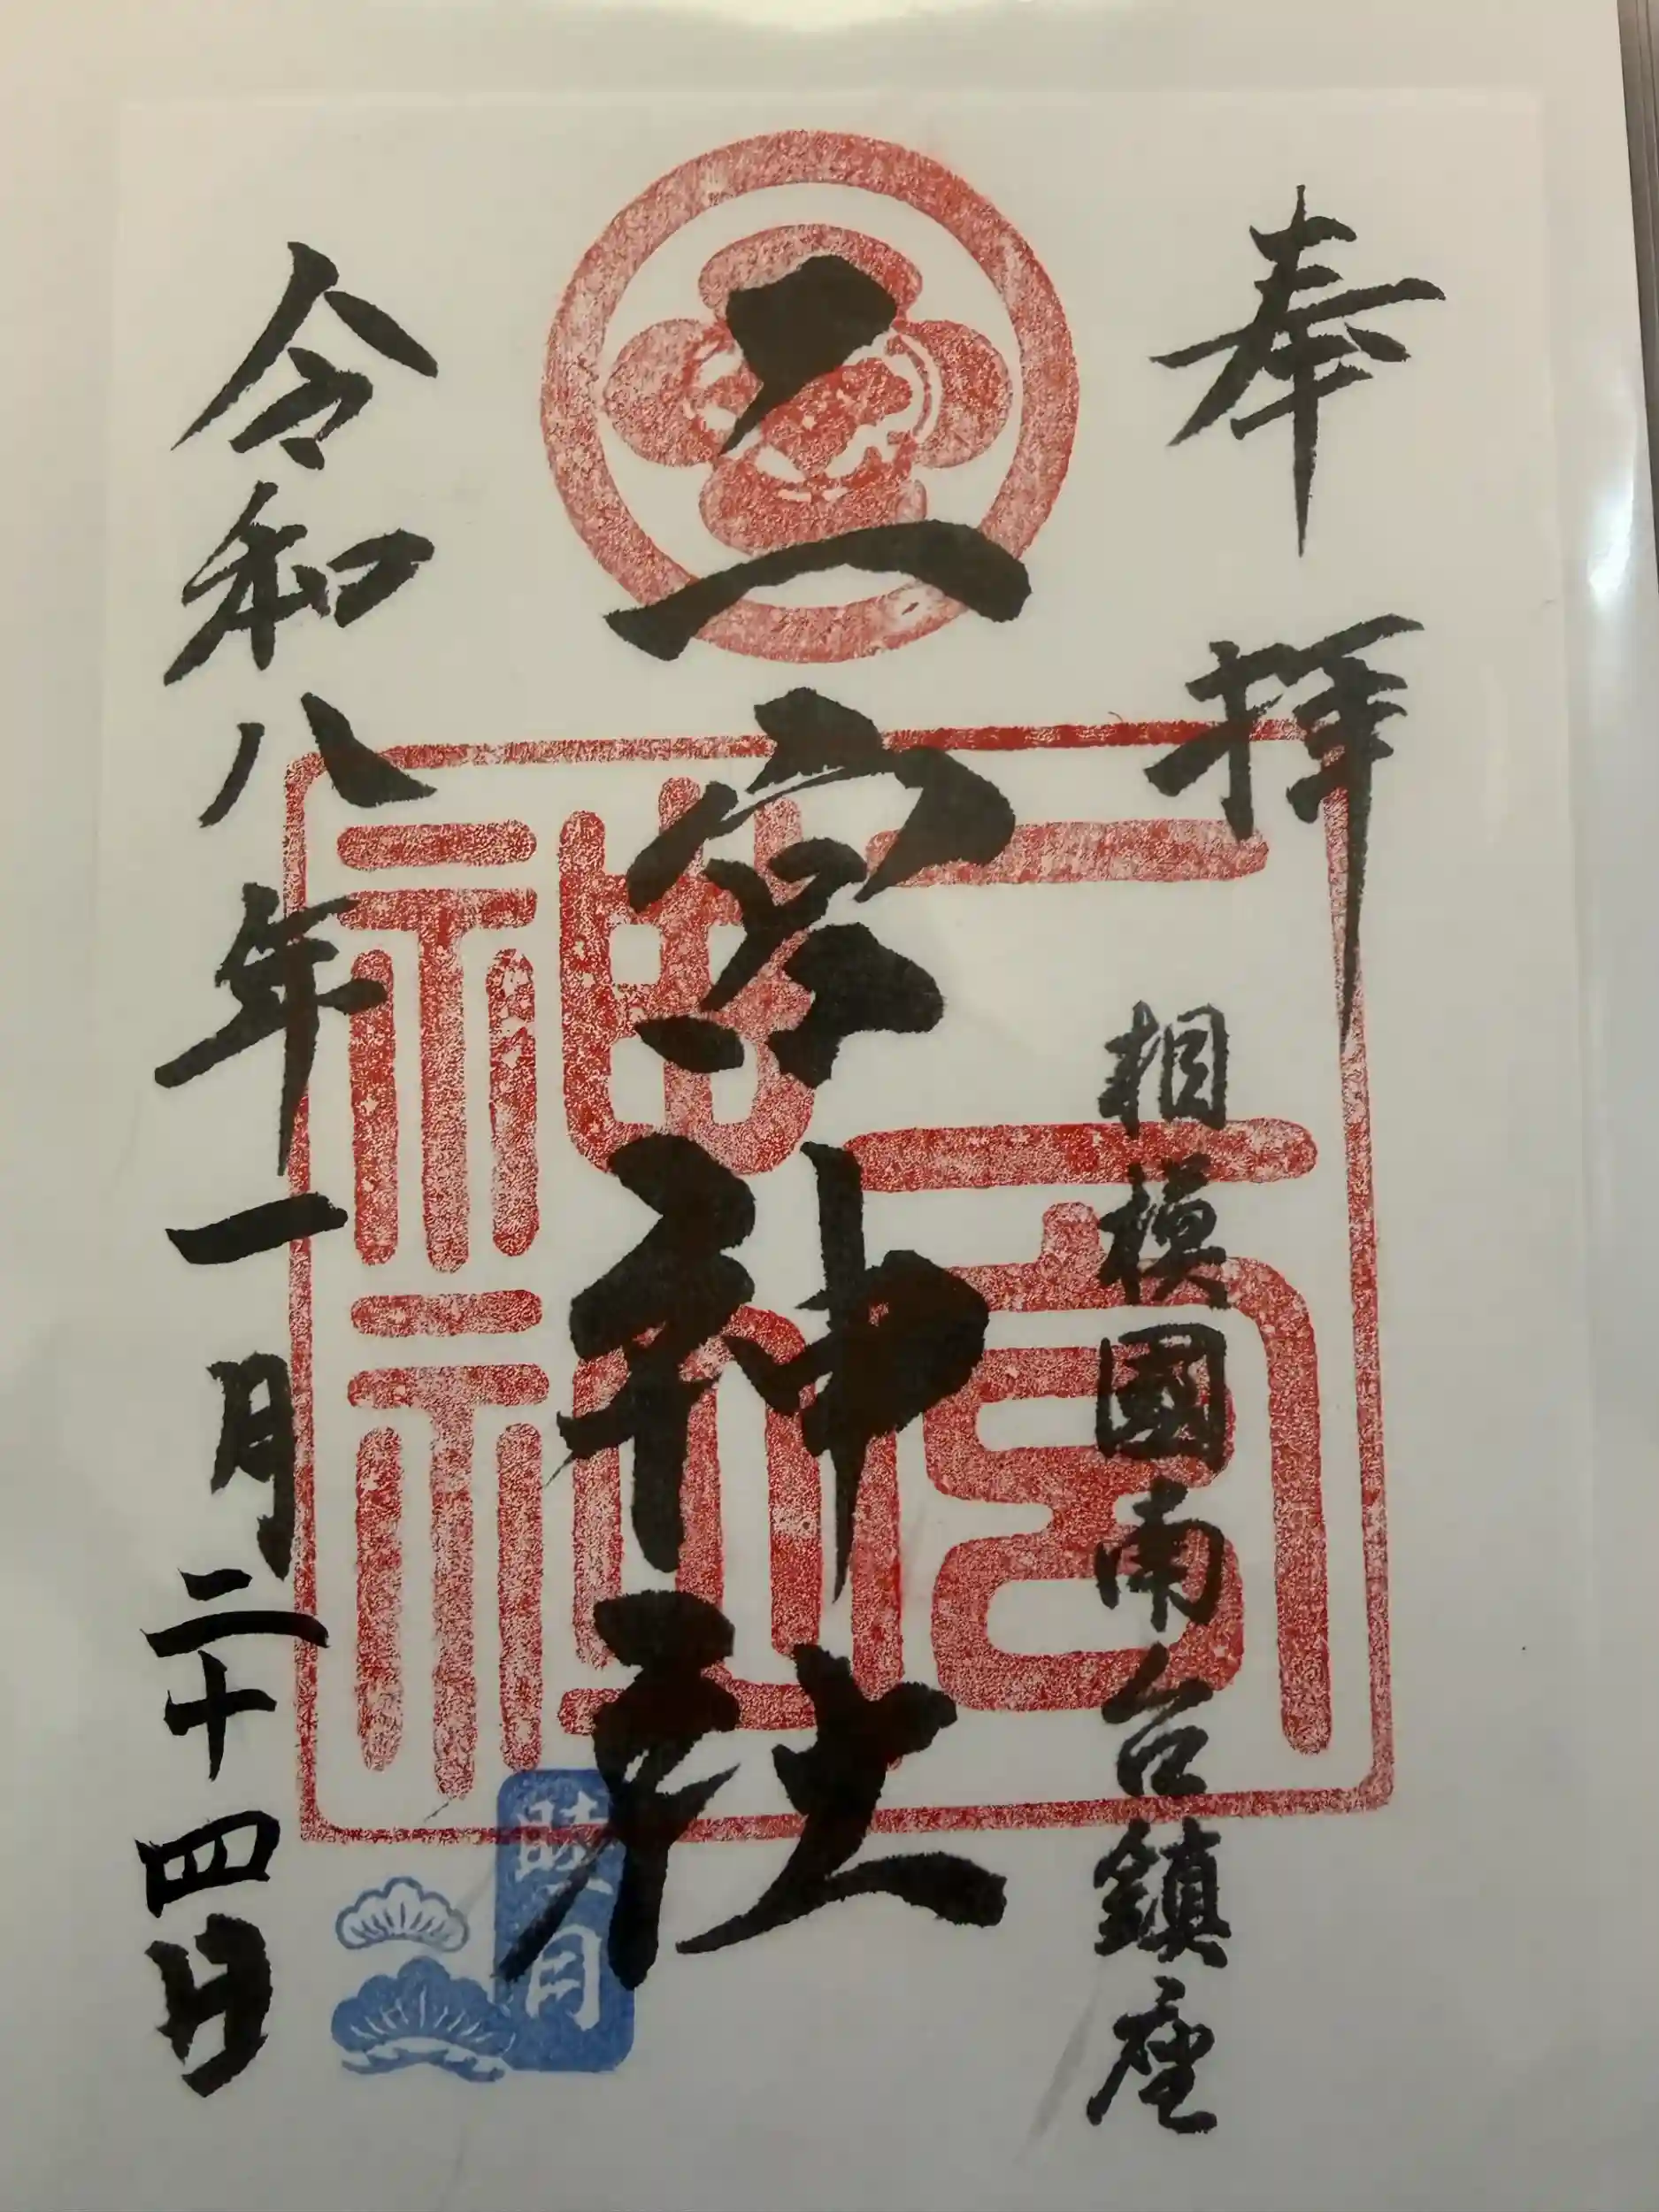 奉拝
相模國南台鎮座
二宮神社
二宮
神社
睦月
令和八年一月二十四日